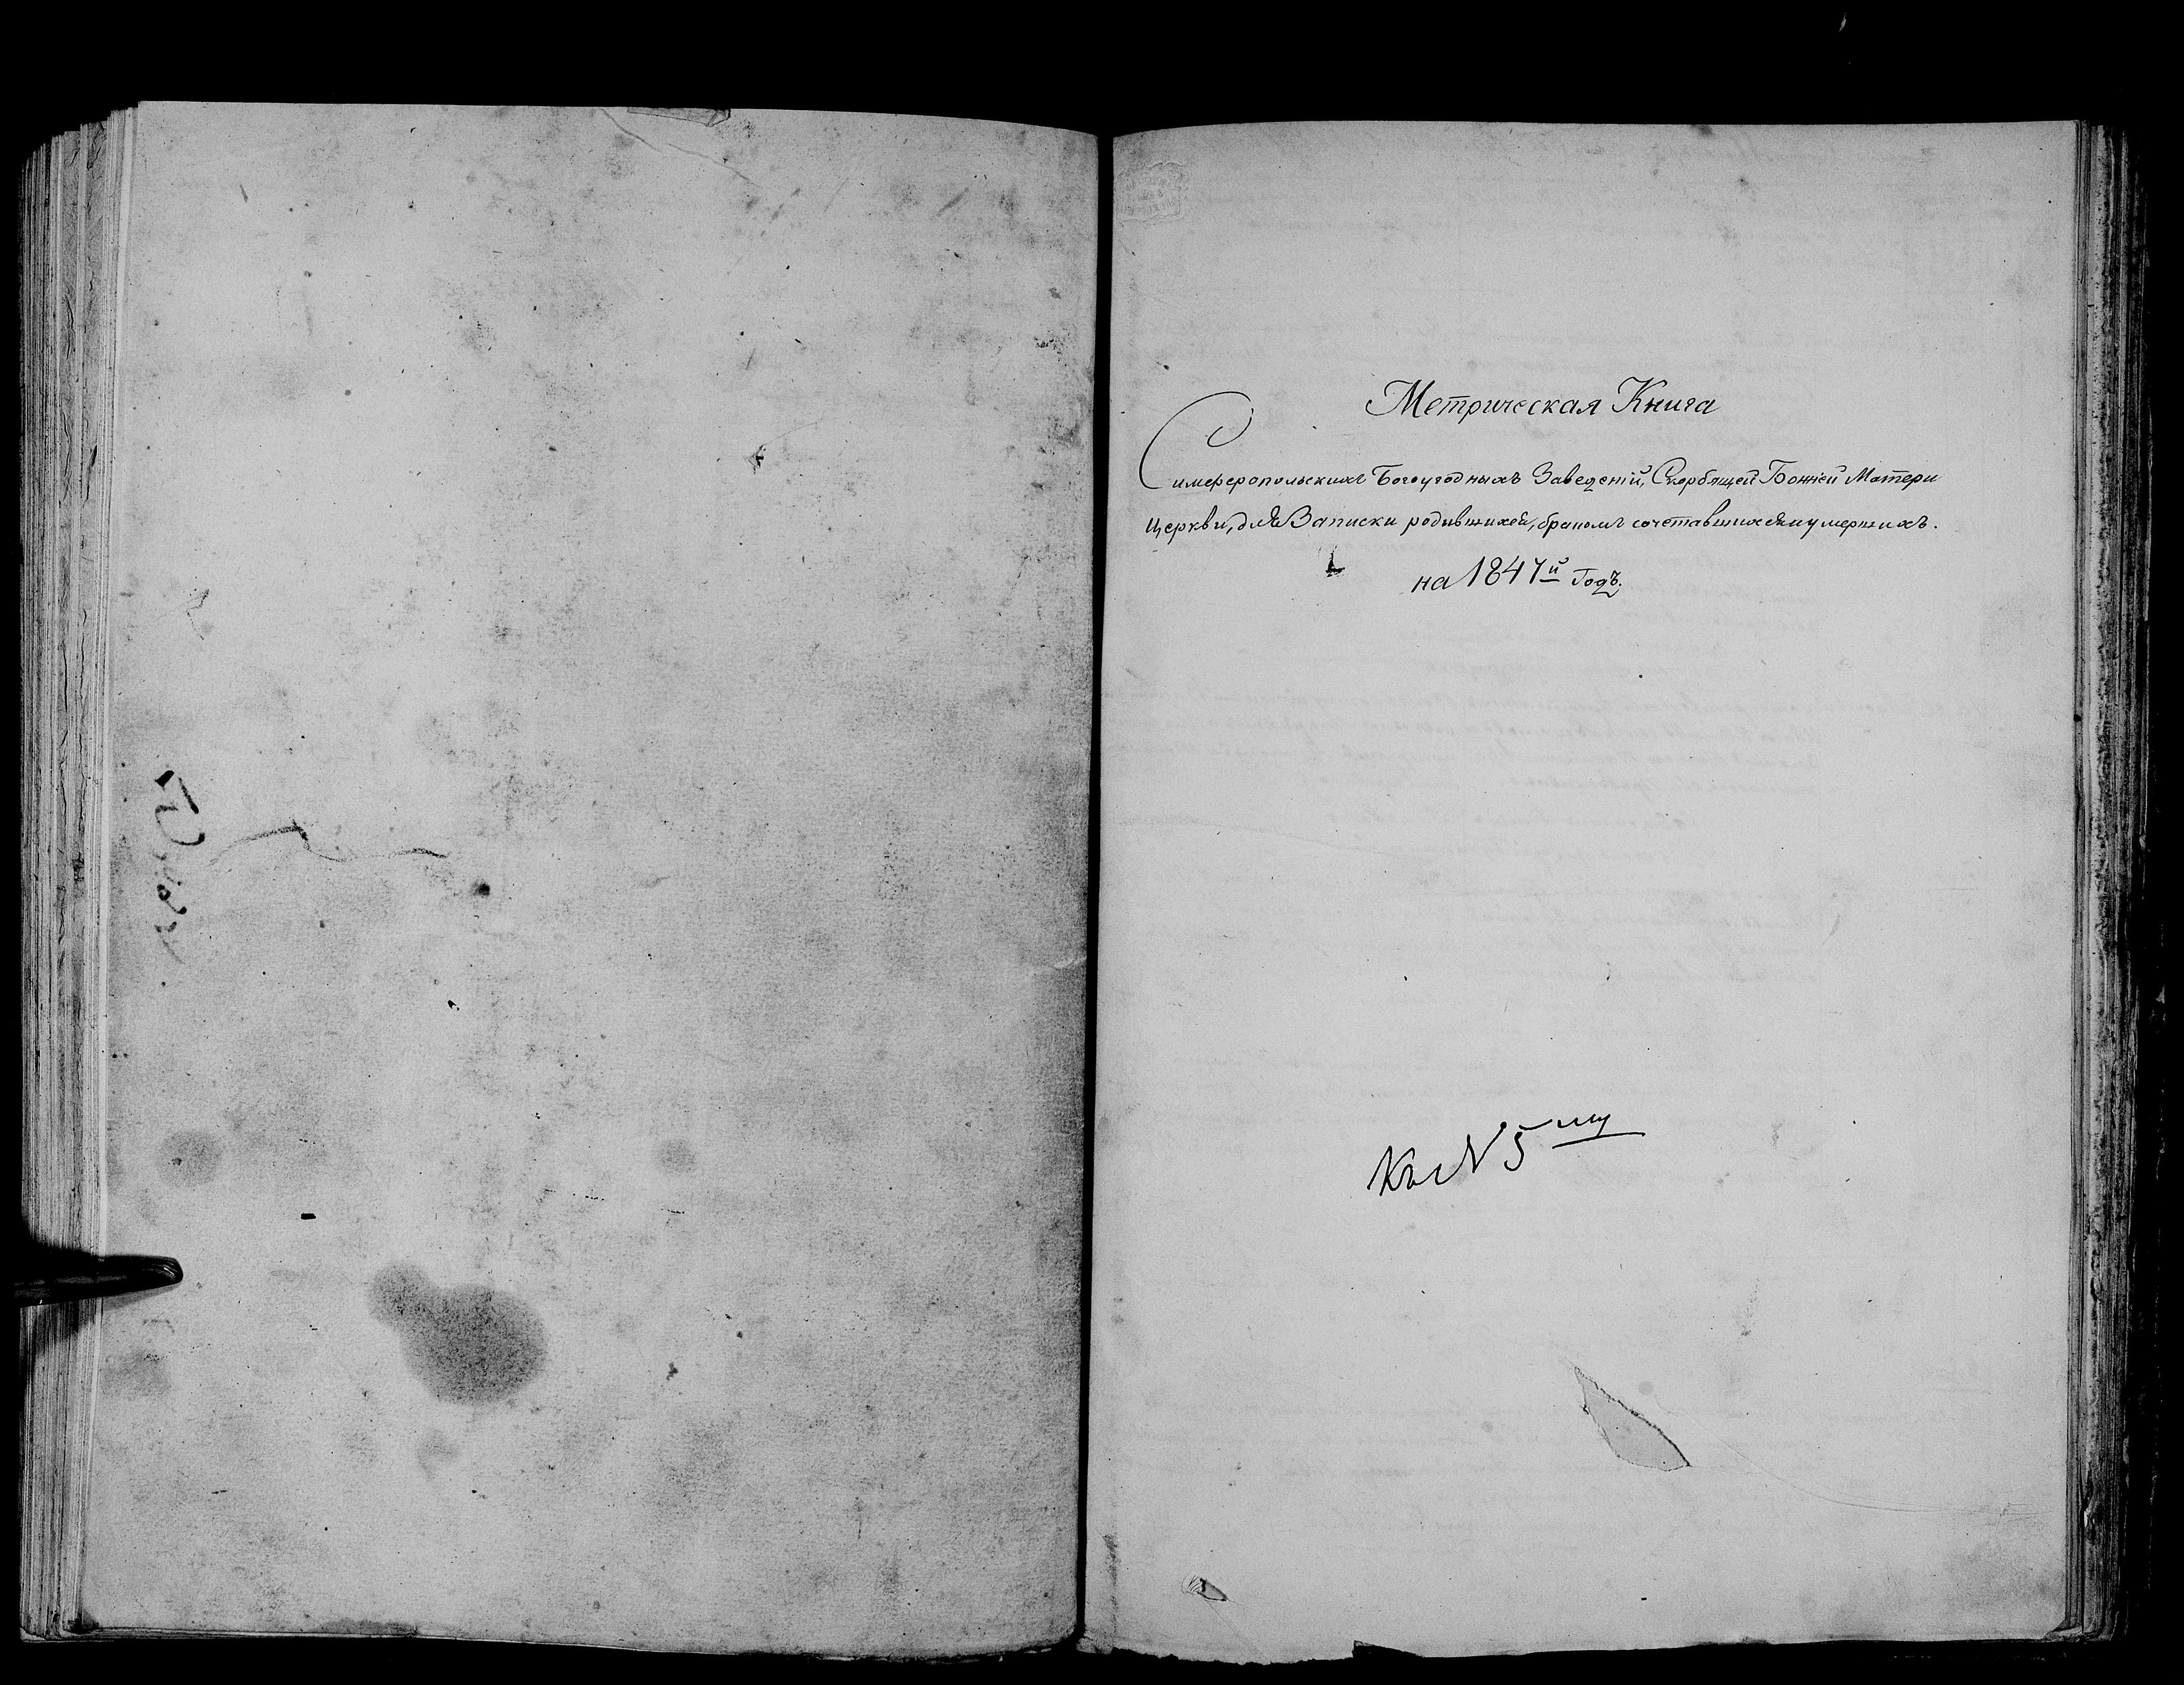 Метрическая Книга
Симферопольскихъ Богоугодныхъ Заведеній, Скорбящей Божіей Матери
Церкви, для Записки родившихся, бракомъ сочетавшихся и умершихъ.
на 1847й Годъ.
Къ N 5му